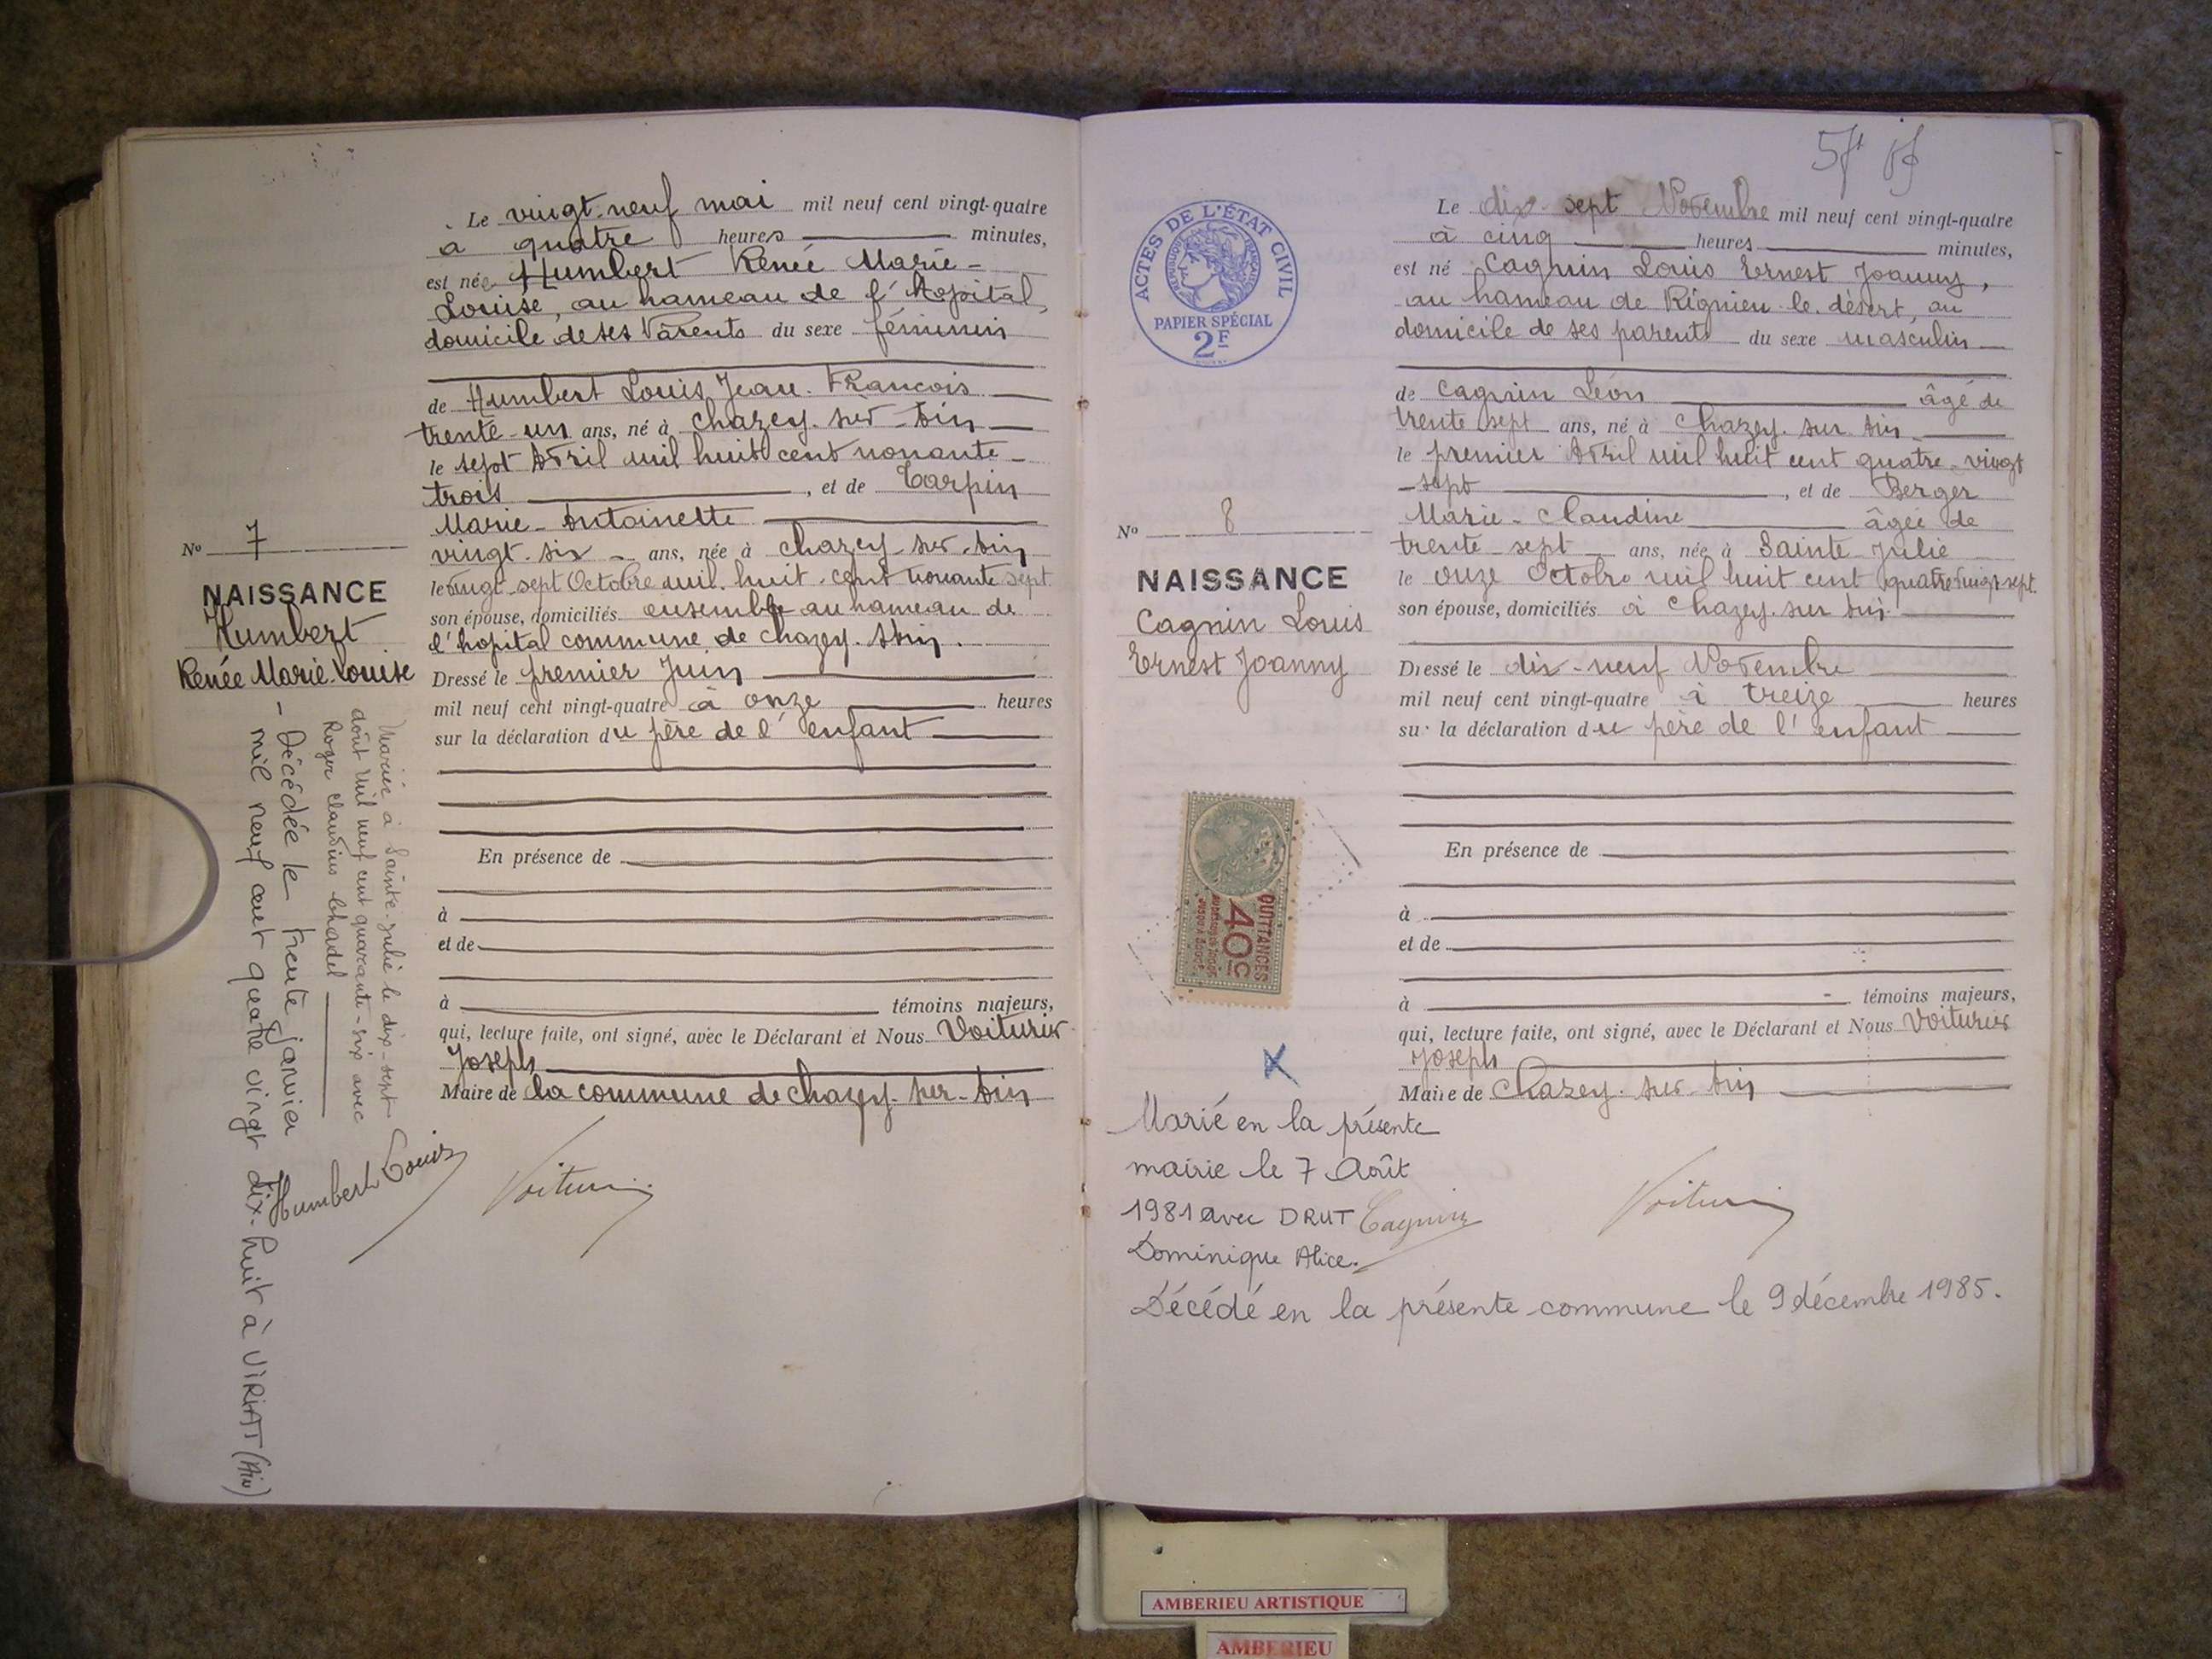 Le vingt-neuf mai mil neuf cent vingt-quatre
à quatre heures minutes,
est née Humbert Renée Marie-
Louise, au hameau de l'Hopital,
domicile de ses Parents du sexe féminin
de Humbert Louis Jean-Francois
trente-un ans, né à Chazey-sur-Ain
le sept Avril mil huit cent nonante-
trois, et de Carpin
Marie-Antoinette
vingt-six ans, née à Chazey-sur-Ain
le vingt-sept Octobre mil huit-cent nonante sept
son épouse, domiciliés ensemble au hameau de
l'hopital commune de Chazey-s-Ain.
Dressé le premier Juin
mil neuf cent vingt-quatre à onze heures
sur la déclaration du père de l'enfant
En présence de
à
et de
à témoins majeurs,
qui, lecture faite, ont signé, avec le Déclarant et Nous Voiturier
Joseph
Maire de la commune de Chazey-sur-Ain
Humbert Louis
Voiturier
No 7
NAISSANCE
Humbert
Renée Marie-Louise
Mariée à Sainte-Julie le dix-sept
août mil neuf cent quarante-six avec
Roger Claudius
- Décédée le trente janvier
mil neuf cent quatre vingt dix-huit à VIRIAT (Ain)
ACTES DE L'ÉTAT CIVIL
RÉPUBLIQUE FRANÇAISE
PAPIER SPÉCIAL
2F
Le dix-sept Novembre mil neuf cent vingt-quatre
à cinq heures minutes,
est né Cagnin Louis Ernest Joanny,
au hameau de Rignieu-le-désert, au
domicile de ses parents du sexe masculin
de Cagnin Léon âgé de
trente sept ans, né à Chazey-sur-Ain
le premier Avril mil huit cent quatre-vingt
-sept, et de Berger
Marie-Claudine âgée de
trente-sept ans, née à Sainte Julie
le onze Octobre mil huit cent quatre vingt sept.
son épouse, domiciliés à Chazey-sur-Ain
Dressé le dix-neuf Novembre
mil neuf cent vingt-quatre à treize heures
sur la déclaration du père de l'enfant
En présence de
à
et de
à témoins majeurs,
qui, lecture faite, ont signé, avec le Déclarant et Nous Voiturier
Joseph
Maire de Chazey-sur-Ain
No 8
NAISSANCE
Cagnin Louis
Ernest Joanny
QUITTANCES
40c
Marié en la présente
mairie le 7 Août
1981 avec DRUT
Dominique Alice.
Cagnin
Voiturier
Décédé en la présente commune le 9 décembre 1985.
AMBERIEU ARTISTIQUE
AMBERIEU